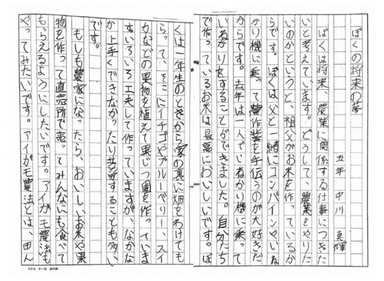 ぼくの将来の夢
五年 中川
ぼくは将来、農業に関係する仕事につきた
いと考えています。どうして、農業をやりた
いのかというと、祖父がお米を作っているか
らです。ぼくは父と一緒にコンバインやいね
かり機に乗って農作業を手伝うのが大好きだ
からです。今年は一人でいねかり機に乗って
いねかりをすることができました。自分たち
で作っているお米は最高においしいです。ぼ
くは一年生のときから家の裏に畑をわけても
らって、そこにイチゴやブルーベリー、スイ
カなどの果物を植えて果じつ園を作っていま
す。いろいろ工夫して作っていますが、なかな
か上手くできなかったり苦労することも多い
です。
もしも農家になったら、おいしいお米や果
物を作って直売所で売ってみんなにも食べて
もらえるようにしたいです。アイガモ農法も
やってみたいです。アイガモ農法とは、田ん